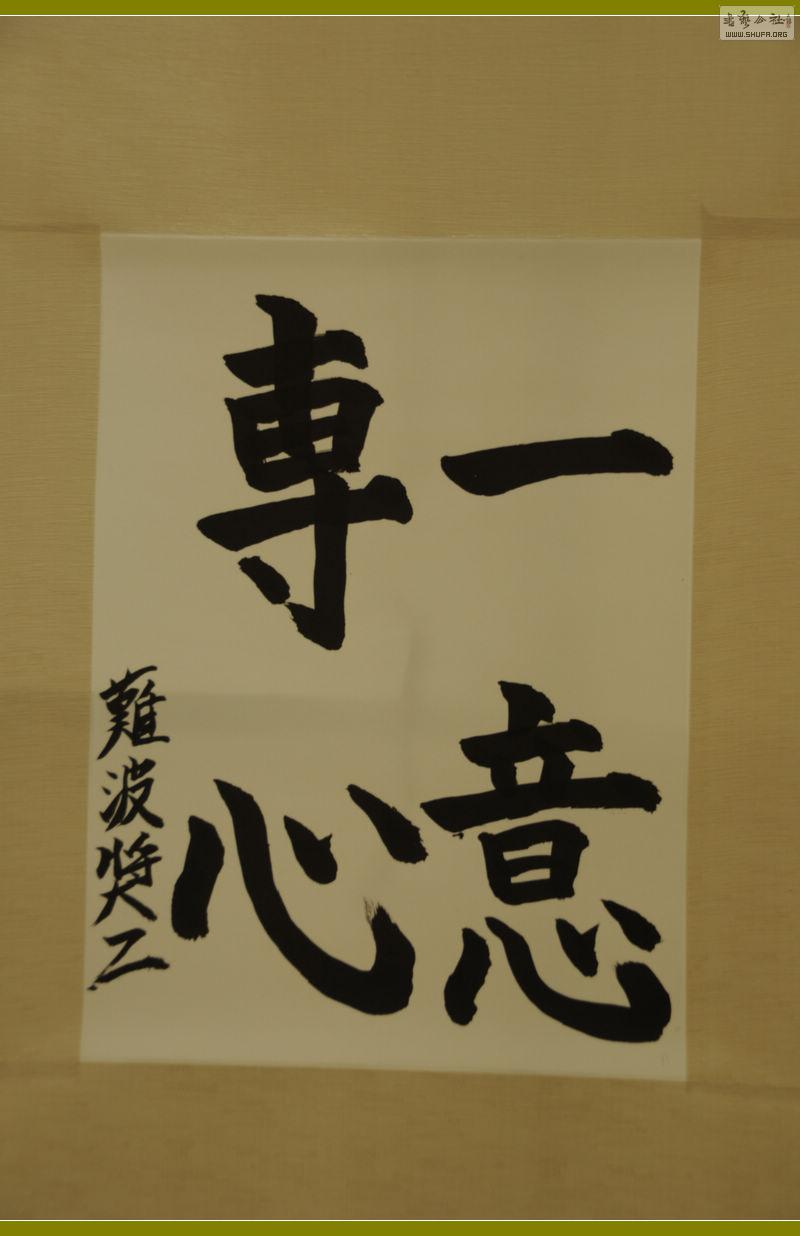 一意
専心
難波奨二
书艺公社
WWW.SHUFA.ORG